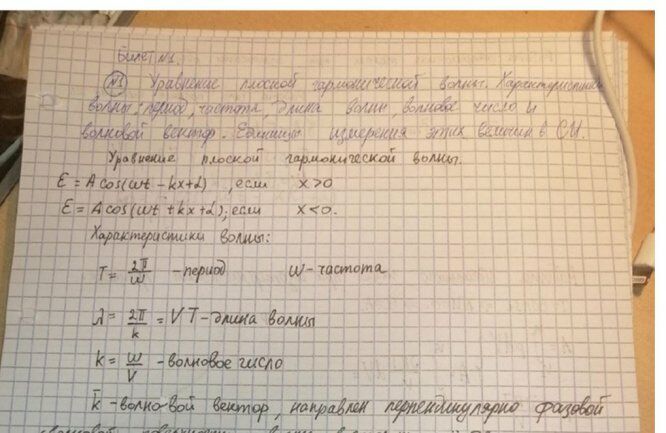 Билет №1.
№1 Уравнение плоской гармонической волны. Характеристики
волны: период, частота, длина волны, волновое число и
волновой вектор. Единицы измерения этих величин в СИ.
Уравнение плоской гармонической волны.
Ɛ = A cos(ωt - kx + α), если x > 0
Ɛ = A cos(ωt + kx + α), если x < 0.
Характеристики волны:
T = 2π/ω - период ω - частота
λ = 2π/k = VT - длина волны
k = ω/V - волновое число
k̄ - волно-вой вектор, направлен перпендикулярно фазовой